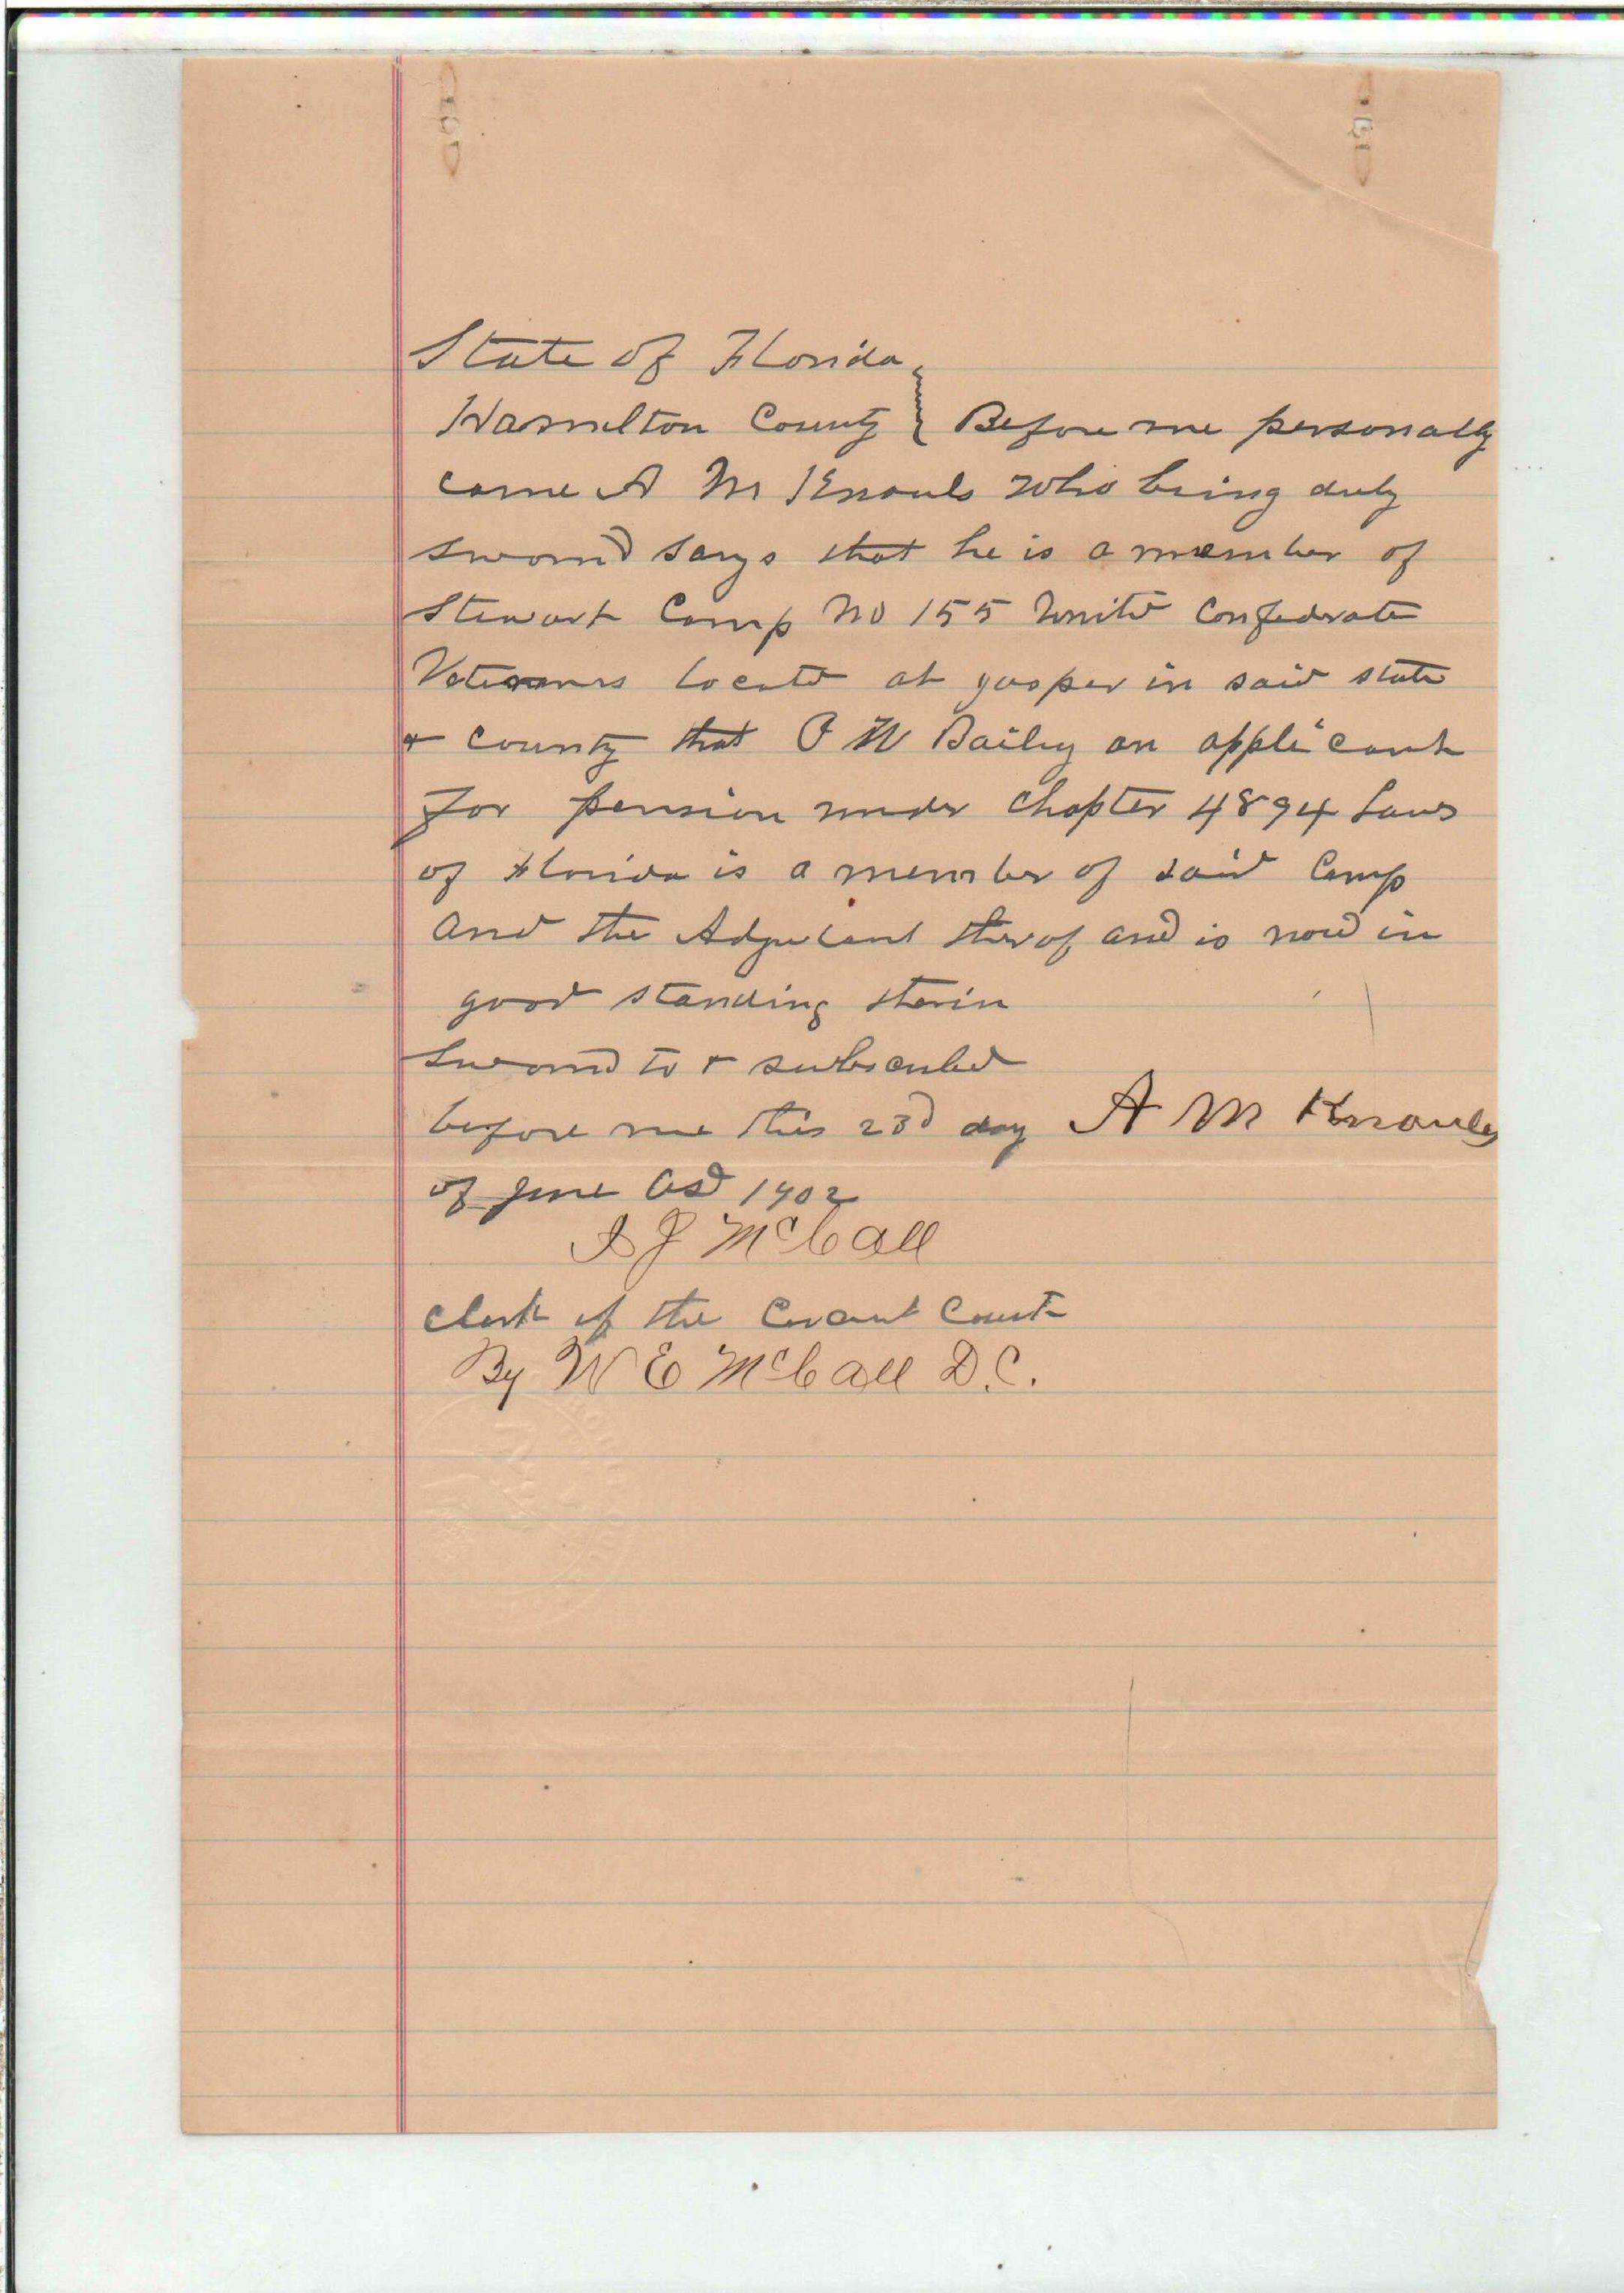 State of Florida
Hamilton County } Before me personally
came A M Knowls who being duly
sworn says that he is a member of
Stewart Camp No 155 United Confederate
Veterans located at Jasper in said State
+ County that O W Bailey an applicant
for pension under Chapter 4894 Laws
of Florida is a member of said Camp
and the Adjutant therof and is now in
good standing therin
Sworn to + subscribed
before me this 23d day A M Knowles
of June AD 1902
A J McCall
Clerk of the Circuit Court
By W E McCall D.C.